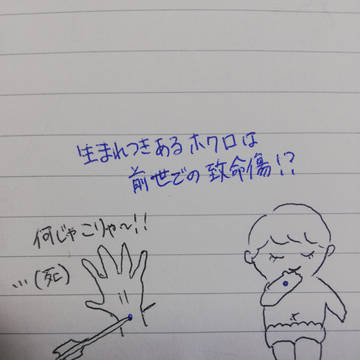 生まれつきあるホクロは
前世での致命傷!?
何じゃこりゃ〜!!
…(死)